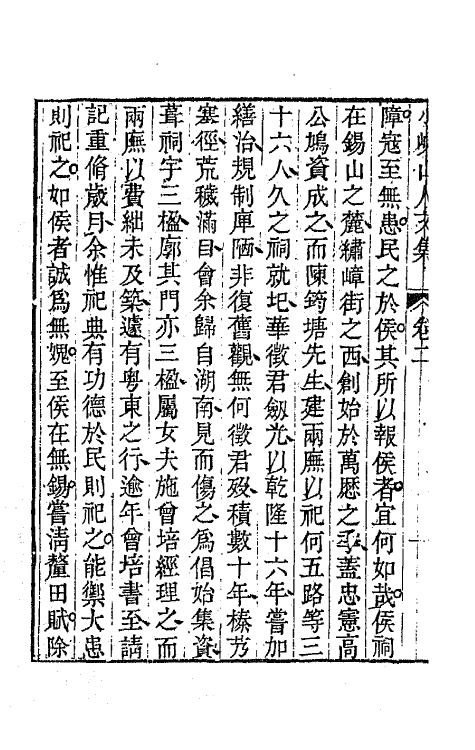 小峴山人文集 卷二
障寇至無患民之於侯其所以報侯者宜何如哉侯祠
在錫山之麓繡嶂街之西創始於萬厯之季蓋忠憲高
公鳩資成之而陳筠塘先生建兩廡以祀何五路等三
十六人久之祠就圯華徵君劒光以乾隆十六年嘗加
繕治規制庳陋非復舊觀無何徵君歿積數十年榛艻
塞徑荒穢滿目會余歸自湖南見而傷之爲倡始集資
葺祠宇三楹廓其門亦三楹屬女夫施曾培經理之而
兩廡以費絀未及築遽有粵東之行逾年曾培書至請
記重脩歲月余惟祀典有功德於民則祀之能禦大患
則祀之如侯者誠爲無媿至侯在無錫嘗淸釐田賦除